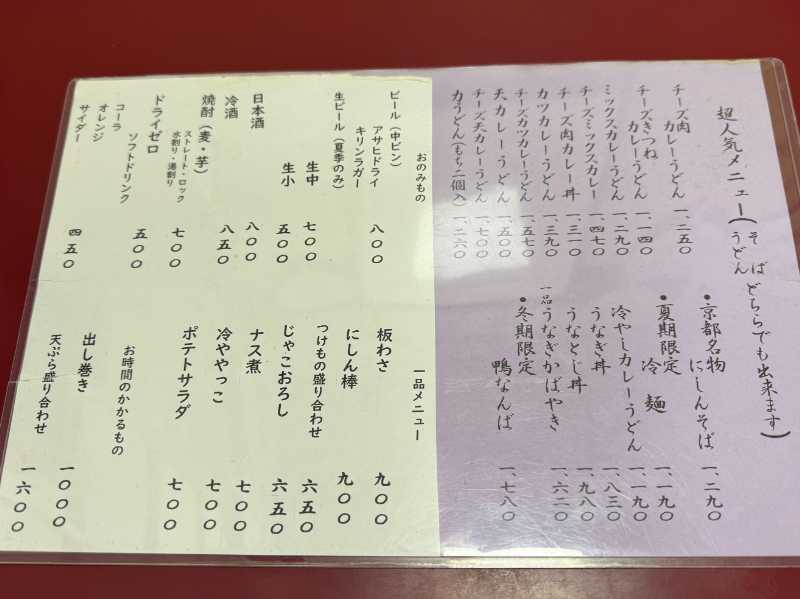 超人気メニュー(そば うどん どちらでも出来ます)
チーズ肉
カレーうどん 一、二五〇
チーズきつね
カレーうどん 一、一四〇
ミックスカレーうどん 一、二九〇
チーズミックスカレー 一、四七〇
チーズ肉カレー丼 一、三一〇
カツカレーうどん 一、三九〇
チーズカツカレーうどん 一、五七〇
天カレーうどん 一、五〇〇
チーズ天カレーうどん 一、七〇〇
力うどん(もち二個入) 一、二六〇
●京都名物
にしんそば 一、二九〇
●夏期限定
冷麺 一、一九〇
冷やしカレーうどん 一、一九〇
うなぎ丼 一、八三〇
うなとじ丼 一、九八〇
一品 うなぎかばやき 一、六二〇
●冬期限定
鴨なんば 一、七八〇
おのみもの
ビール(中ビン)
アサヒドライ 八〇〇
キリンラガー
生ビール(夏季のみ)
生中 七〇〇
生小 五〇〇
日本酒 八〇〇
冷酒 八五〇
焼酎(麦・芋)
ストレート・ロック
水割り・湯割り 七〇〇
ドライゼロ 五〇〇
ソフトドリンク
コーラ
オレンジ
サイダー 四五〇
一品メニュー
板わさ 九〇〇
にしん棒 九〇〇
つけもの盛り合わせ 六五〇
じゃこおろし 六五〇
ナス煮 七〇〇
冷ややっこ 七〇〇
ポテトサラダ 七〇〇
お時間のかかるもの
出し巻き 一〇〇〇
天ぷら盛り合わせ 一六〇〇